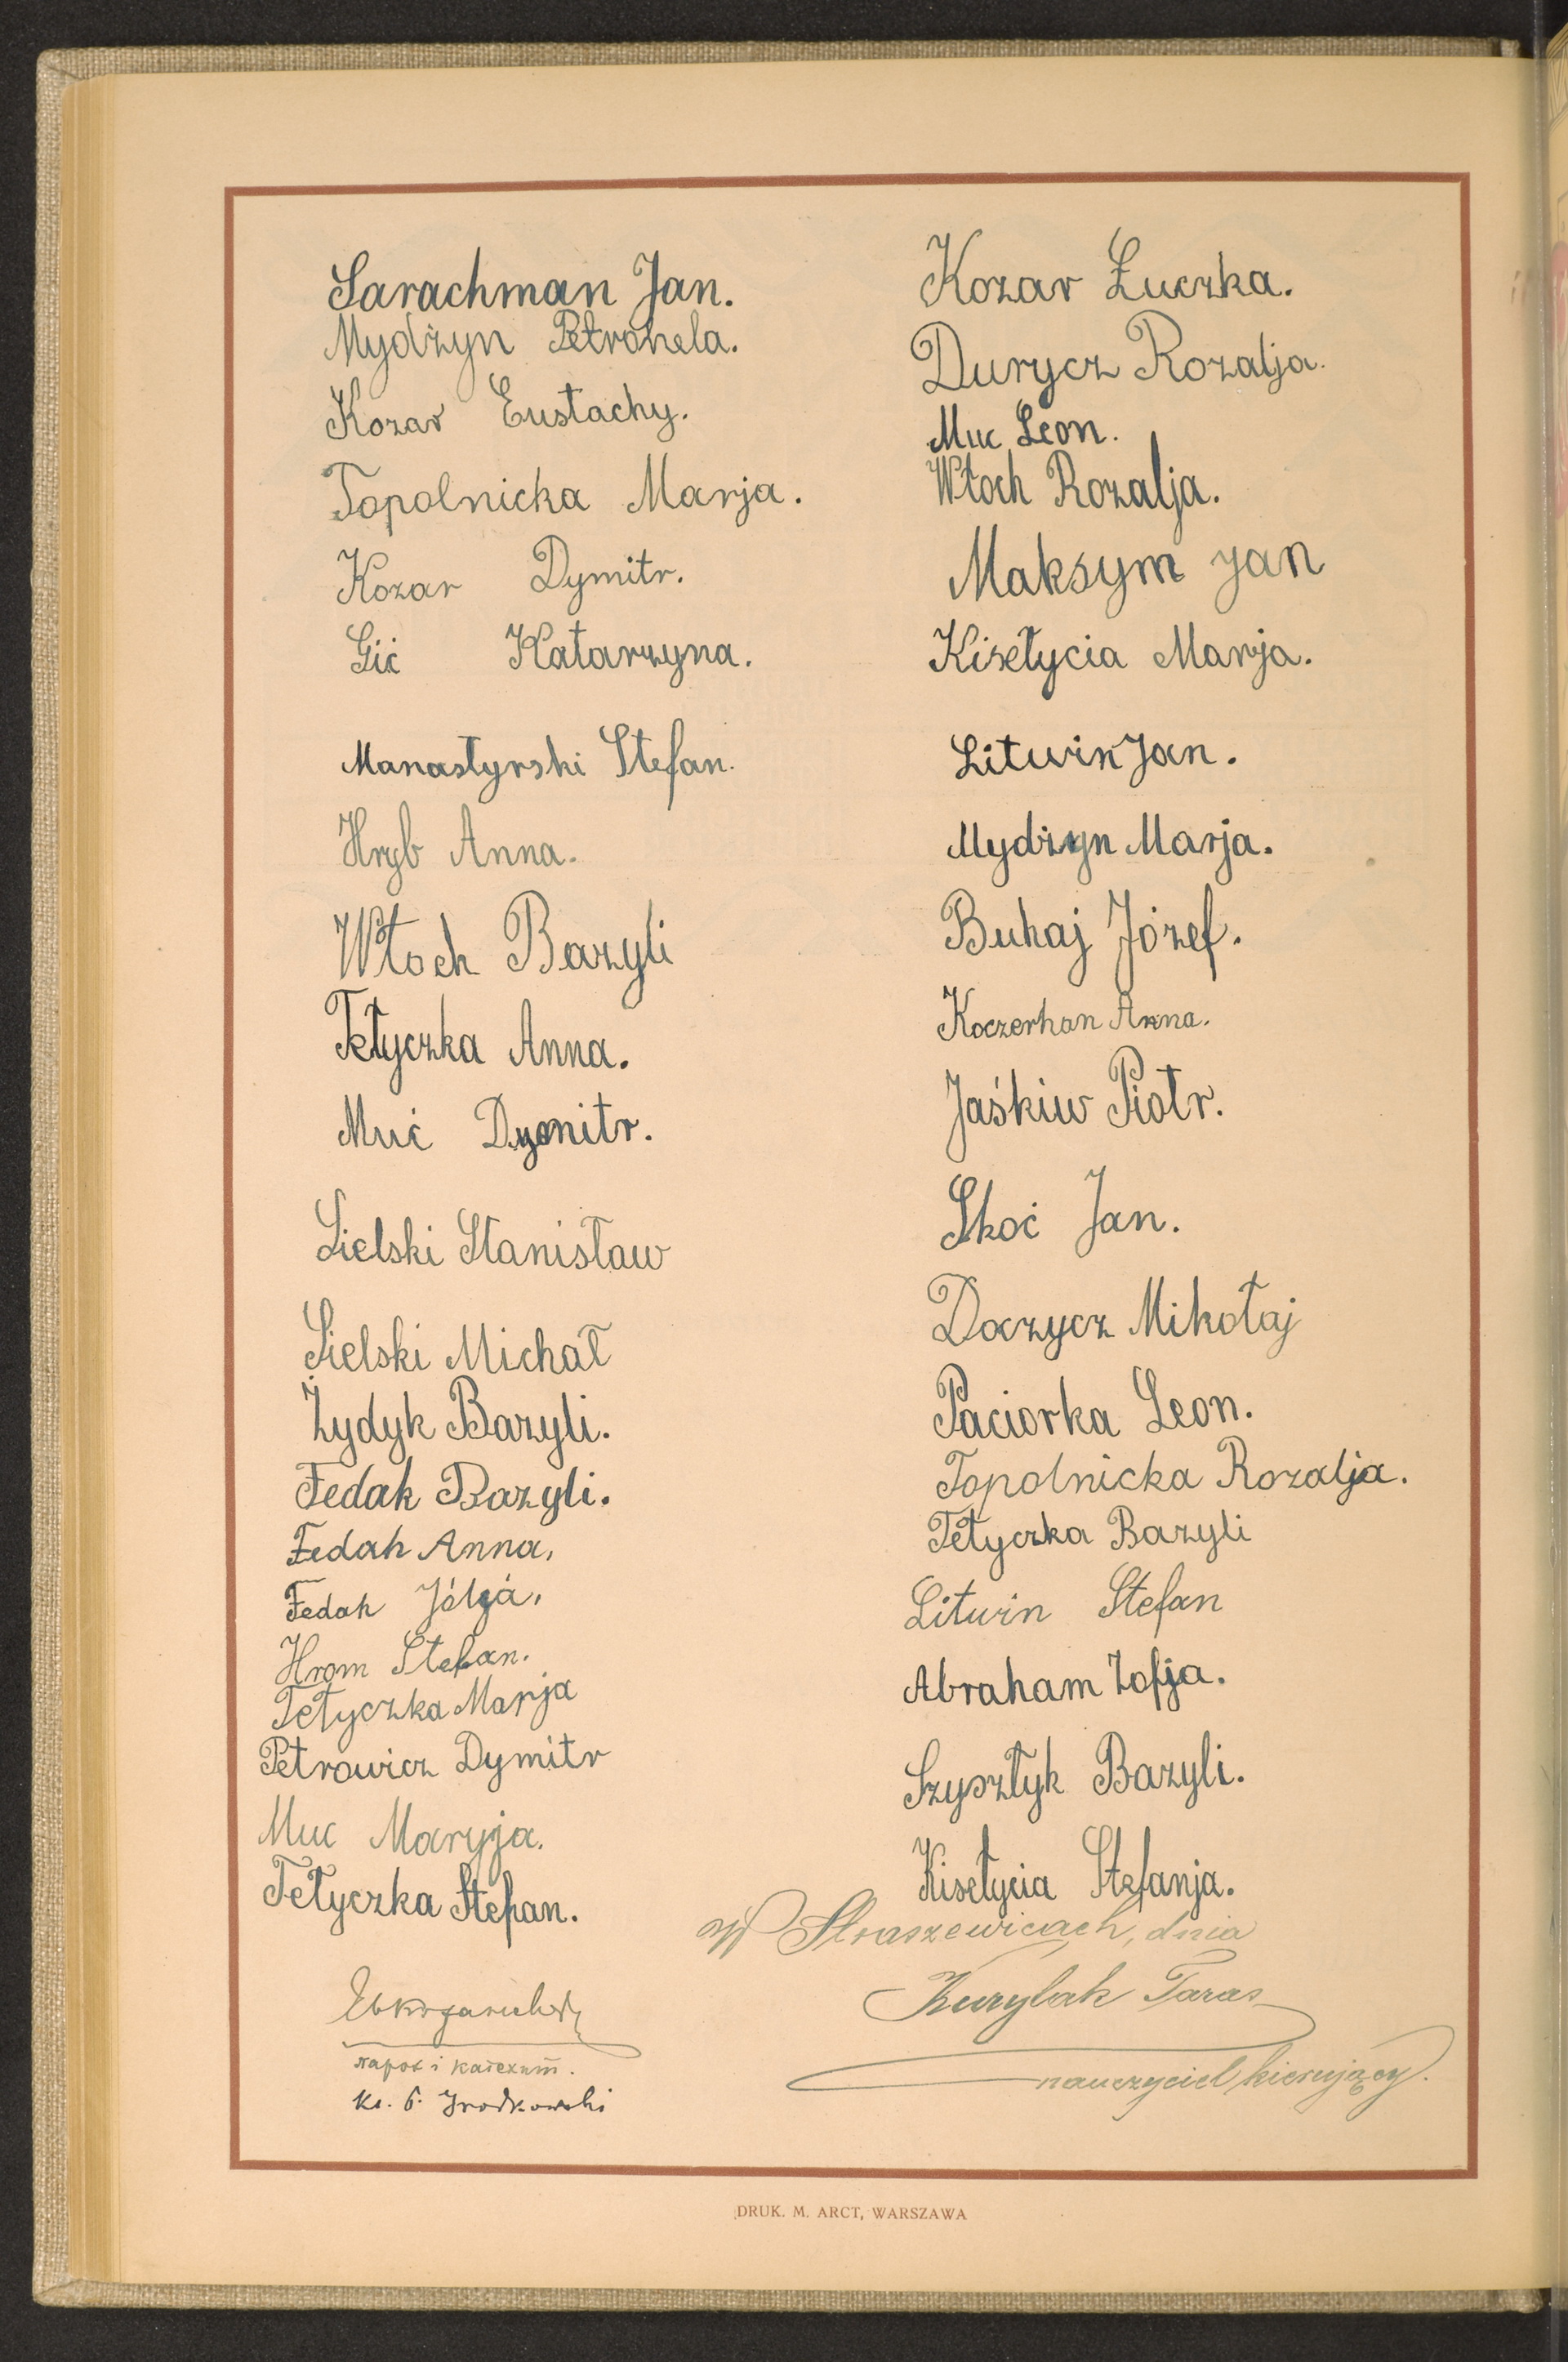 Sarachman Jan.
Mydżyn Petronela.
Kozar Eustachy.
Topolnicka Marja.
Kozar Dymitr.
Gić Katarzyna.
Manastyrski Stefan.
Hryb Anna.
Włoch Bazyli
Tetyczka Anna.
Muć Dymitr.
Sielski Stanisław
Sielski Michał
Żydyk Bazyli.
Fedak Bazyli.
Fedak Anna,
Fedak
Hrom Stefan.
Tetyczka Marja
Petrowicz Dymitr
Muc Maryja.
Tetyczka Stefan.
парох і катехит.
ks.
Kozar Łuczka.
Durycz Rozalja.
Muc Leon.
Włoch Rozalja.
Maksym Jan
Kisełycia Marja.
Litwin Jan.
Mydżyn Marja.
Buhaj Józef.
Koczerhan Anna.
Jaśkiw Piotr.
Skoć Jan.
Doczycz Mikołaj
Paciorka Leon.
Topolnicka Rozalja.
Tetyczka Bazyli
Litwin Stefan
Abraham Zofja.
Szysztyk Bazyli.
Kisełycia Stefanja.
W Straszewicach, dnia
Kurylak Taras
nauczyciel kierujący.
DRUK. M. ARCT, WARSZAWA